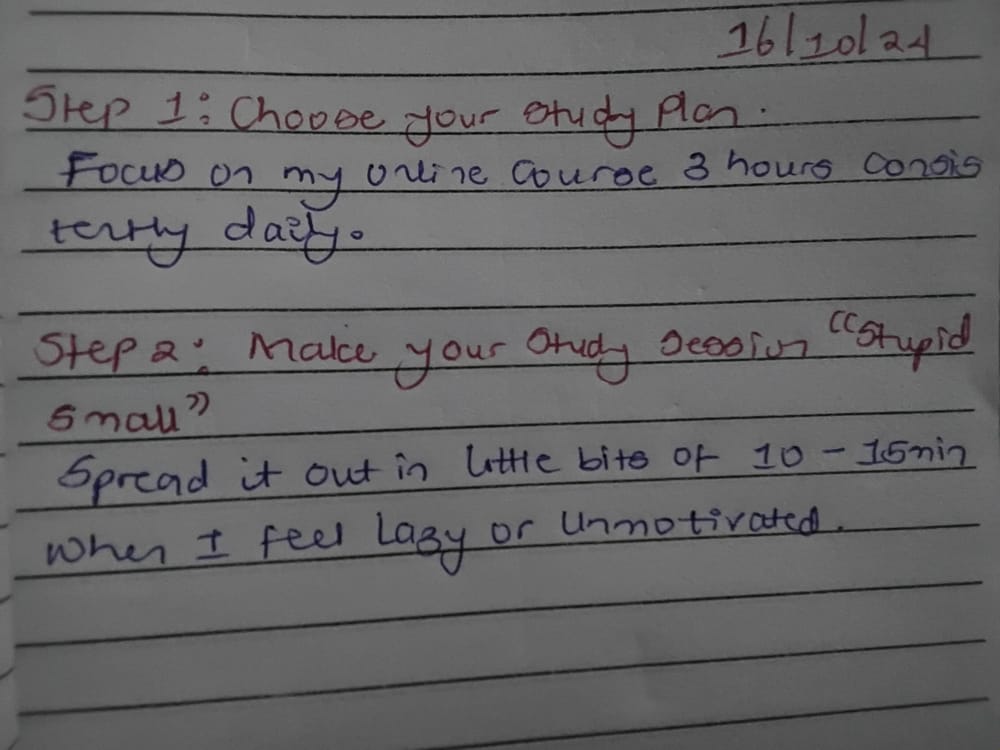 16/10/24
Step 1: Choose your study plan.
Focus on my online course 3 hours consis
tently daily.
Step 2: Make your study session "stupid
small"
Spread it out in little bits of 10 - 15min
when I feel lazy or unmotivated.